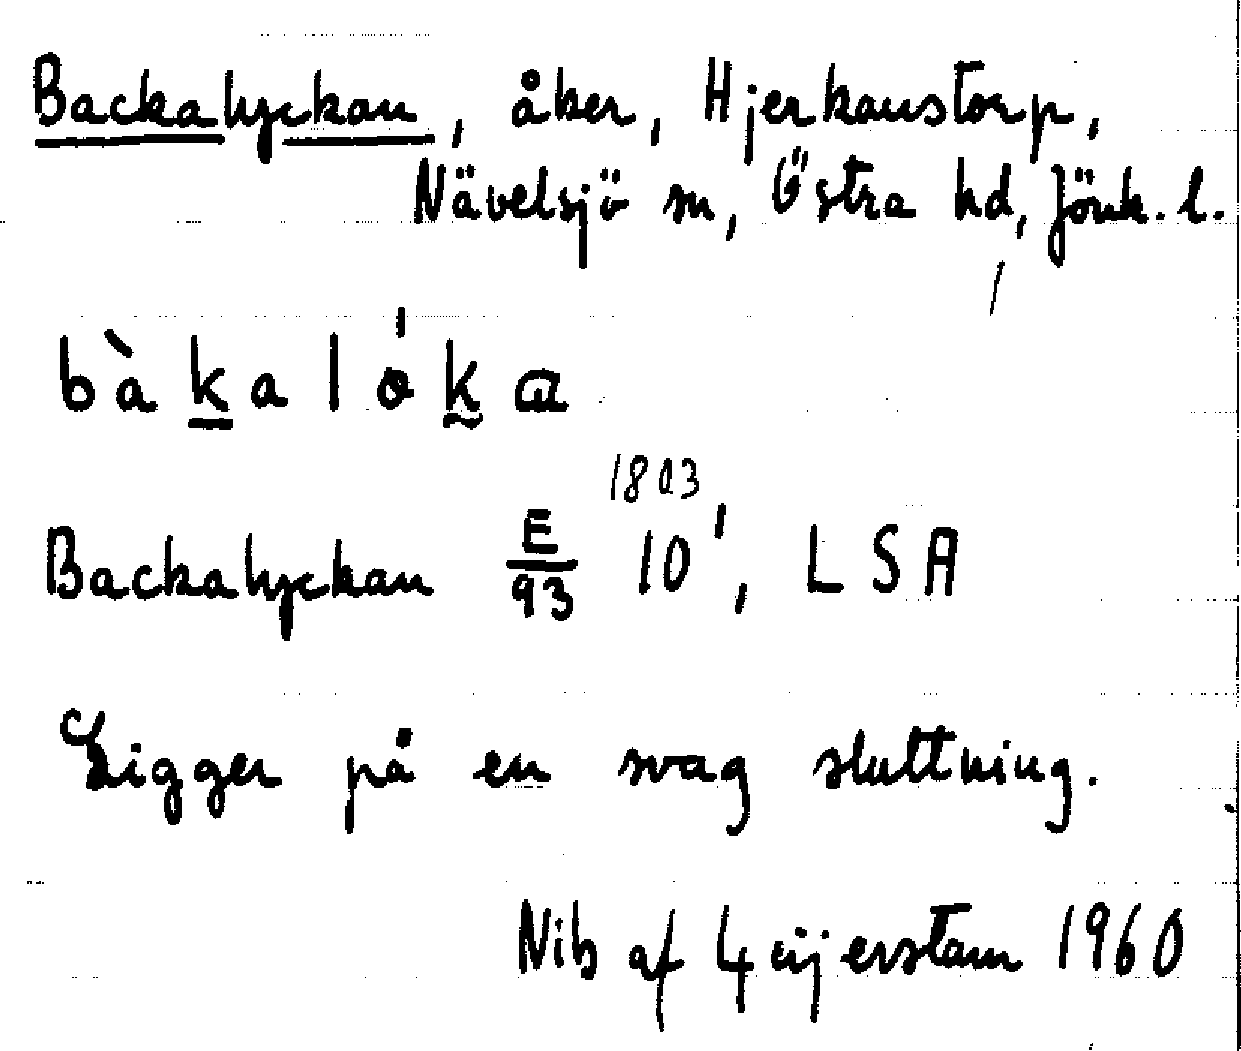 Backalyckan, åker, Hjerkanstorp,
Nävelsjö sn, Östra hd, Jönk. l.
bàkalókα
1803
Backalyckan E/93 10', LSA
Ligger på en svag sluttning.
Nils af Geijerstam 1960